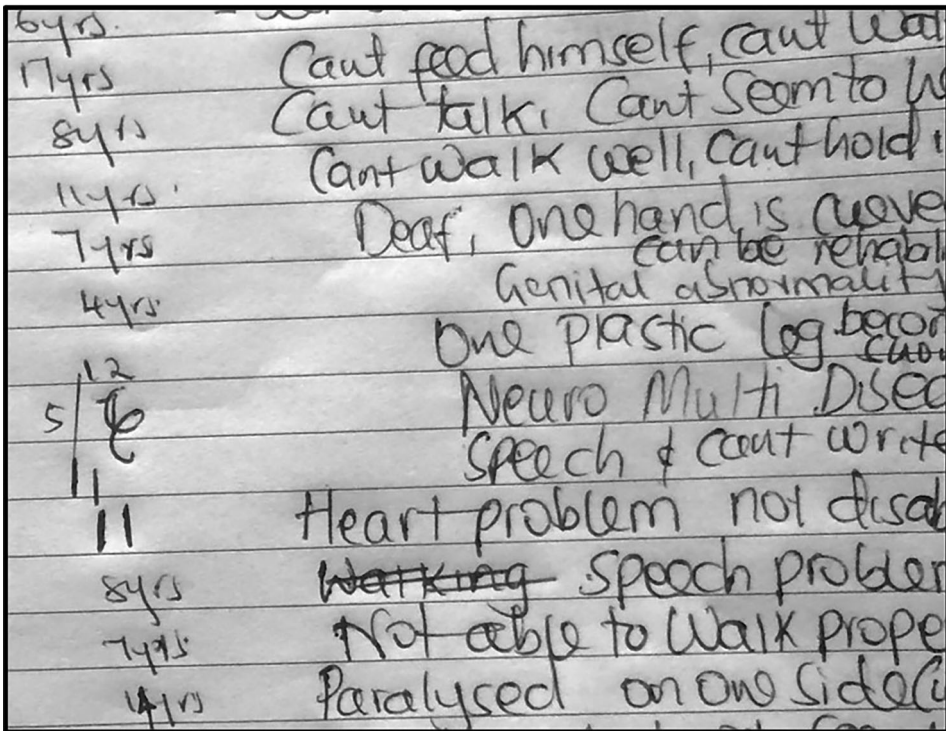 6yrs.
17yrs Cant feed himself, cant
8yrs Cant talk. Cant Seem to
11yrs. Cant walk well, Cant hold
7yrs Deaf, One hand is
can be
4yrs. Genital abnormality
One plastic leg
12
5/ Neuro Multi
speech & cant write
11 Heart problem not
8yrs Walking speech
7yrs. Not able to Walk
14yrs Paralysed on one side